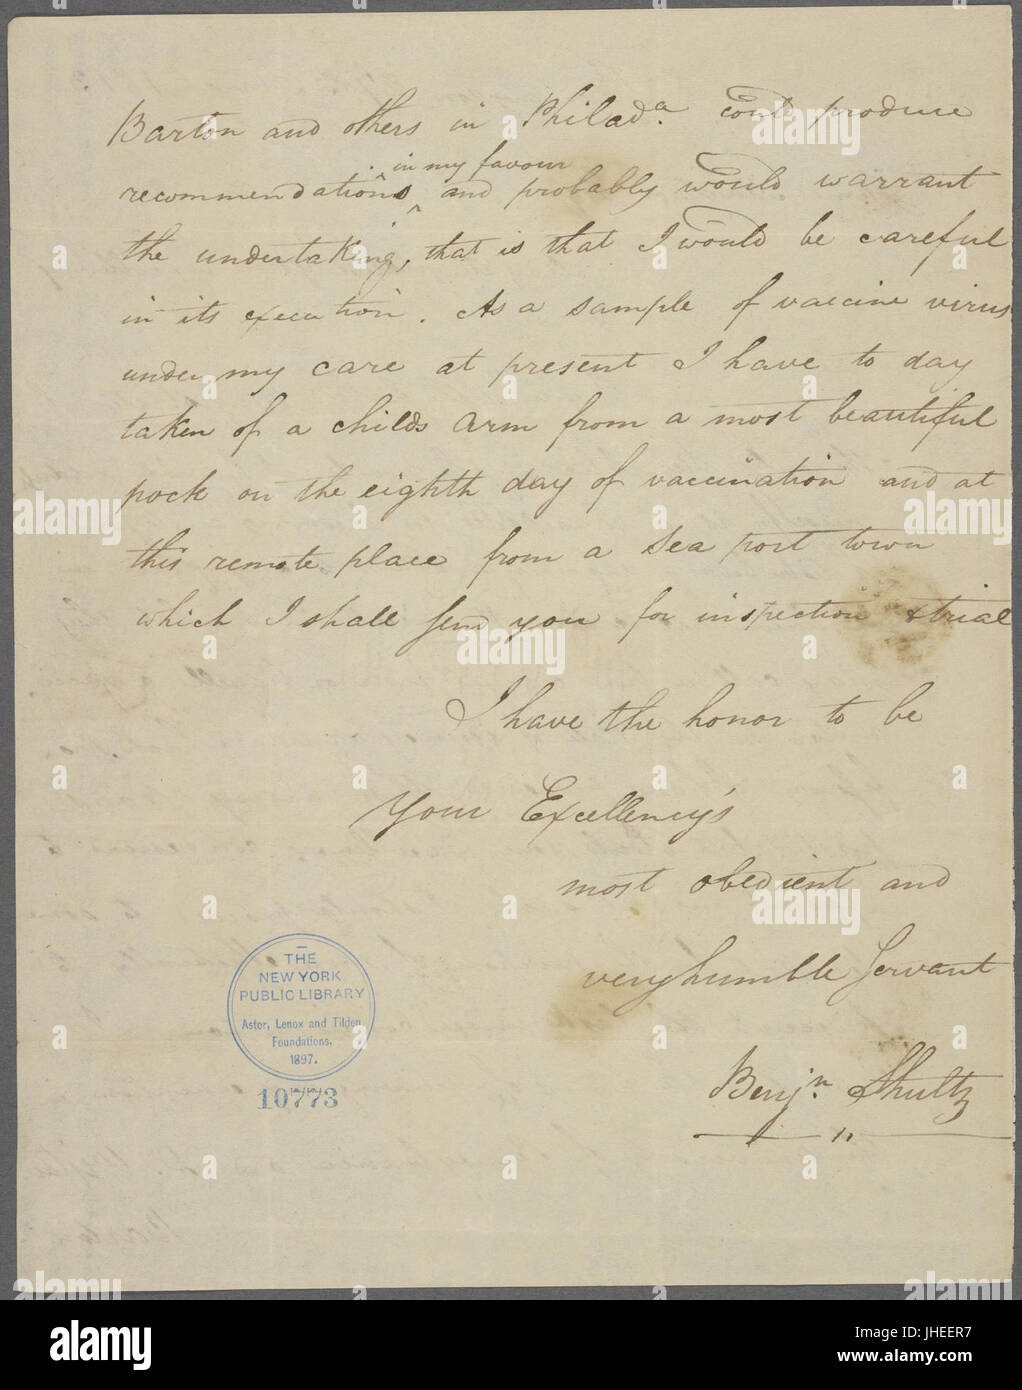 Barton and others in Philad.ª could produce
in my favour
recommendations ^ and probably would warrant
the undertaking, that is that I would be careful
in its execution. As a sample of vaccine virus
under my care at present I have to day
taken of a childs arm from a most beautiful
pock on the eighth day of vaccination and at
this remote place from a sea port town
which I shall send you for inspection & trial
I have the honor to be
Your Excellency's
most obedient and
very humble Servant
Benj.ⁿ Shultz
THE
NEW YORK
PUBLIC LIBRARY
Astor, Lenox and Tilden
Foundations.
1897.
10773
alamy stock photo
alamy
Image ID: JHEER7
www.alamy.com